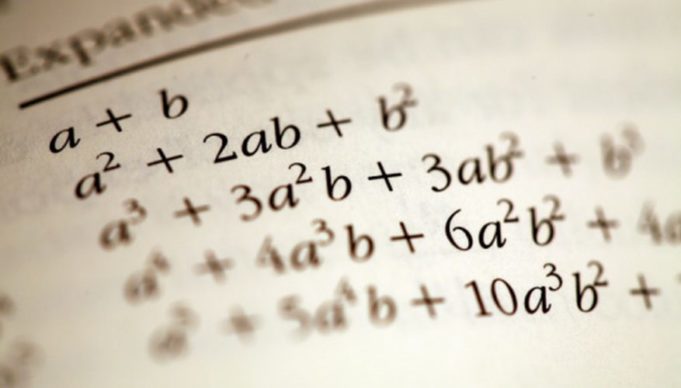 Expanded
a + b
a² + 2ab + b²
a³ + 3a²b + 3ab² + b³
a⁴ + 4a³b + 6a²b² + 4a
a⁵ + 5a⁴b + 10a³b² +